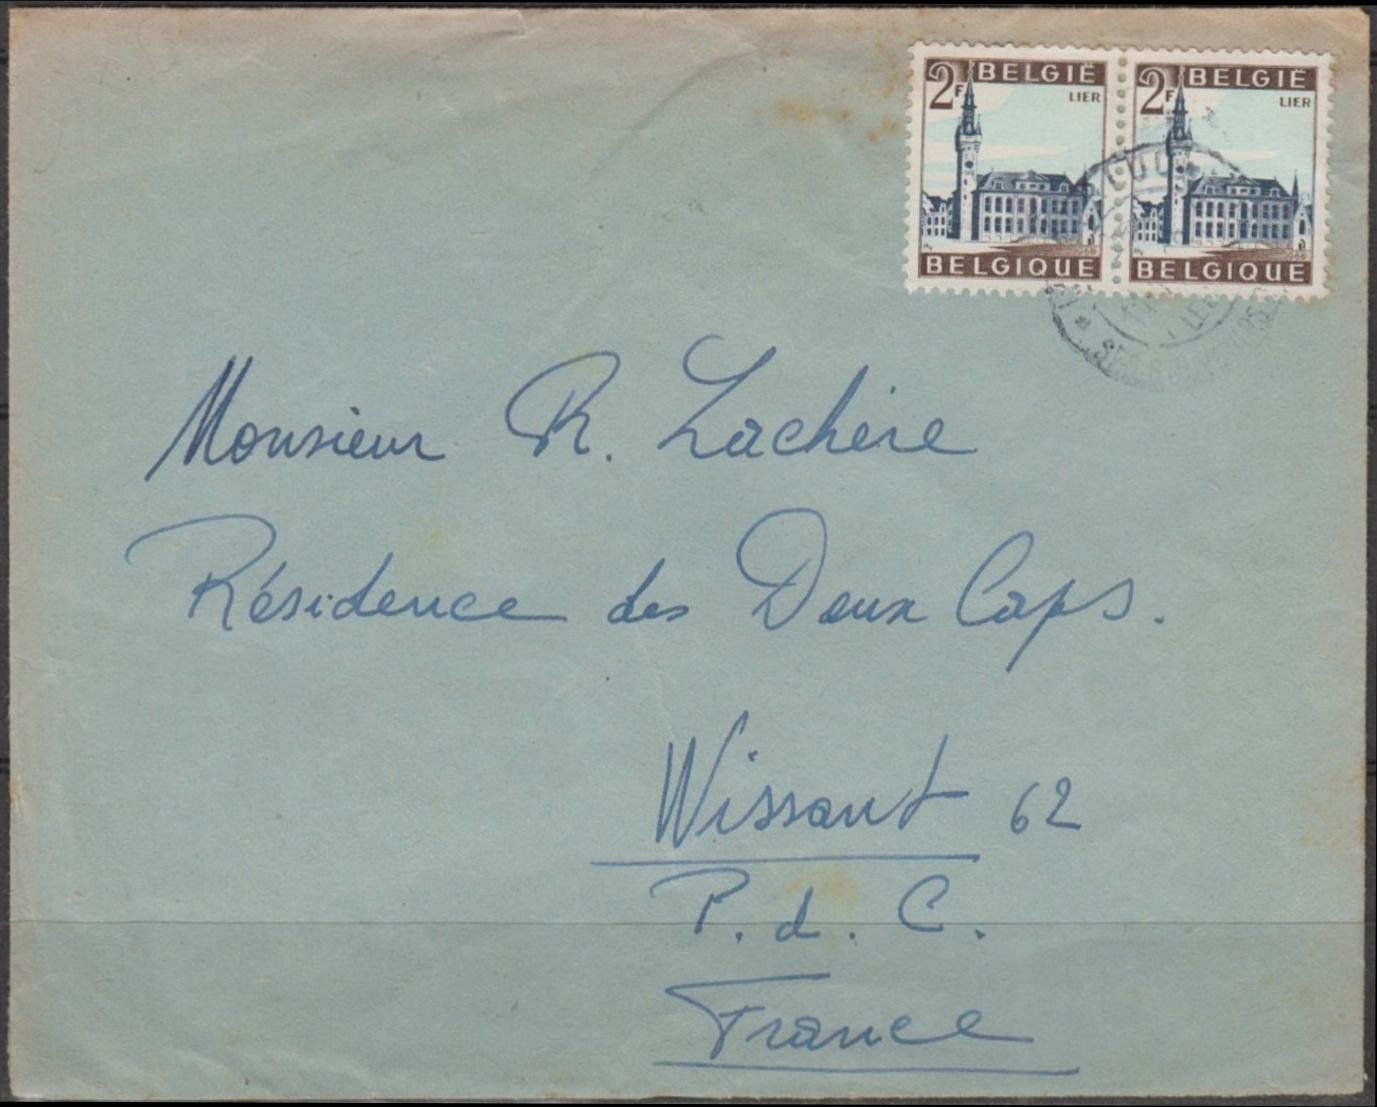 2F BELGIË
LIER
BELGIQUE
2F BELGIË
LIER
BELGIQUE
Monsieur R. Lachère
Résidence des Deux Caps.
Wissant 62
P. d. C.
France